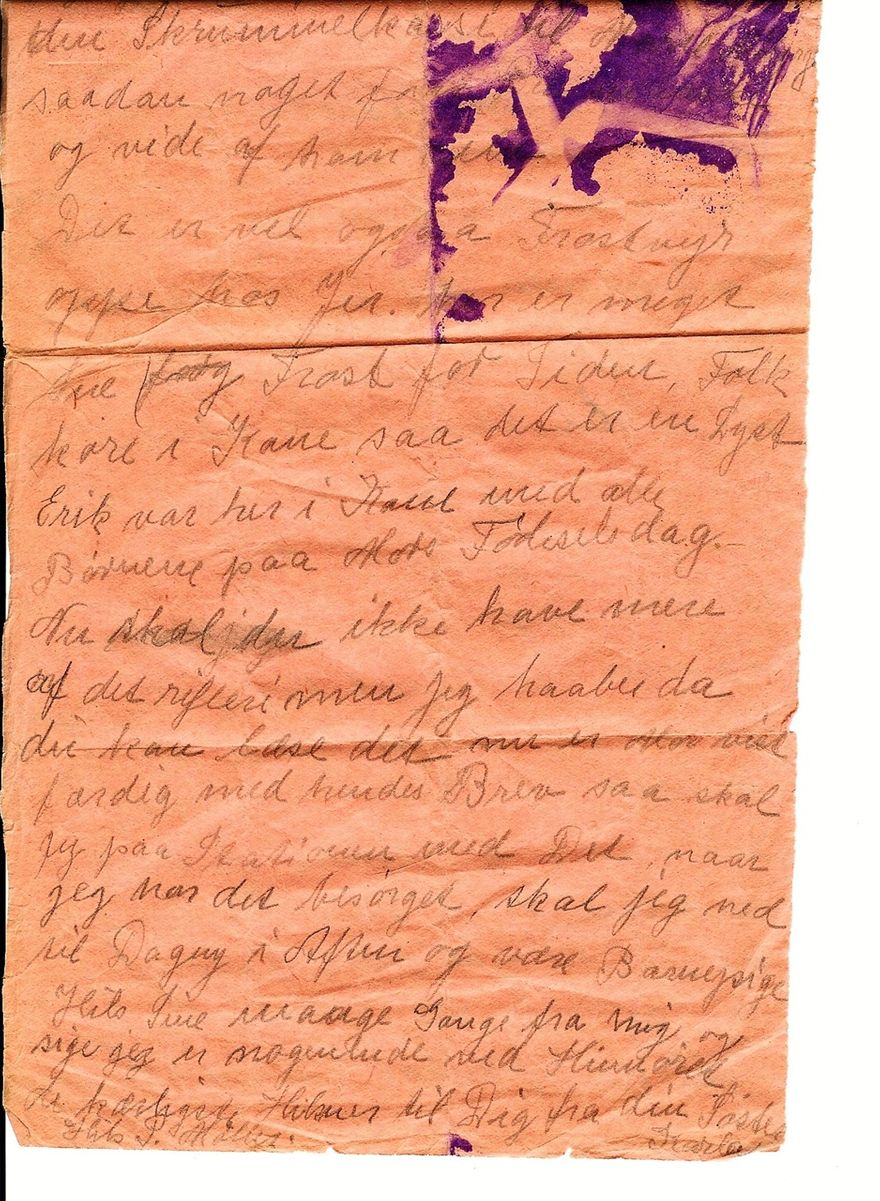 den Skrummelkassi til
saadan noget
og vide af ham
Det er vel ogsaa Frostvejr
oppe hos Jer. Her er meget
Frost for Tiden, Folk
køre i Kane saa det er en Lyst
Erik var her i Kane med alle
Børnene paa Mors Fødselsdag.
Nu skal du ikke have mere
af det men jeg haaber da
du kan læse det nu er Mor vist
færdig med hendes Brev saa skal
jeg paa Stationen med Det, naar
jeg har det besørget, skal jeg ned
til Dagny i Aften og være Barnepige
Hils Sine mange Gange fra mig og
sige jeg er nogenlunde ved
de kærligst Hilsner til Dig fra din Søster
Hils P. Møller.